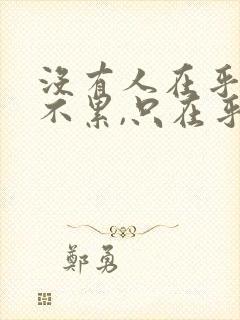 没有人在乎
不累,只在乎
鄭勇